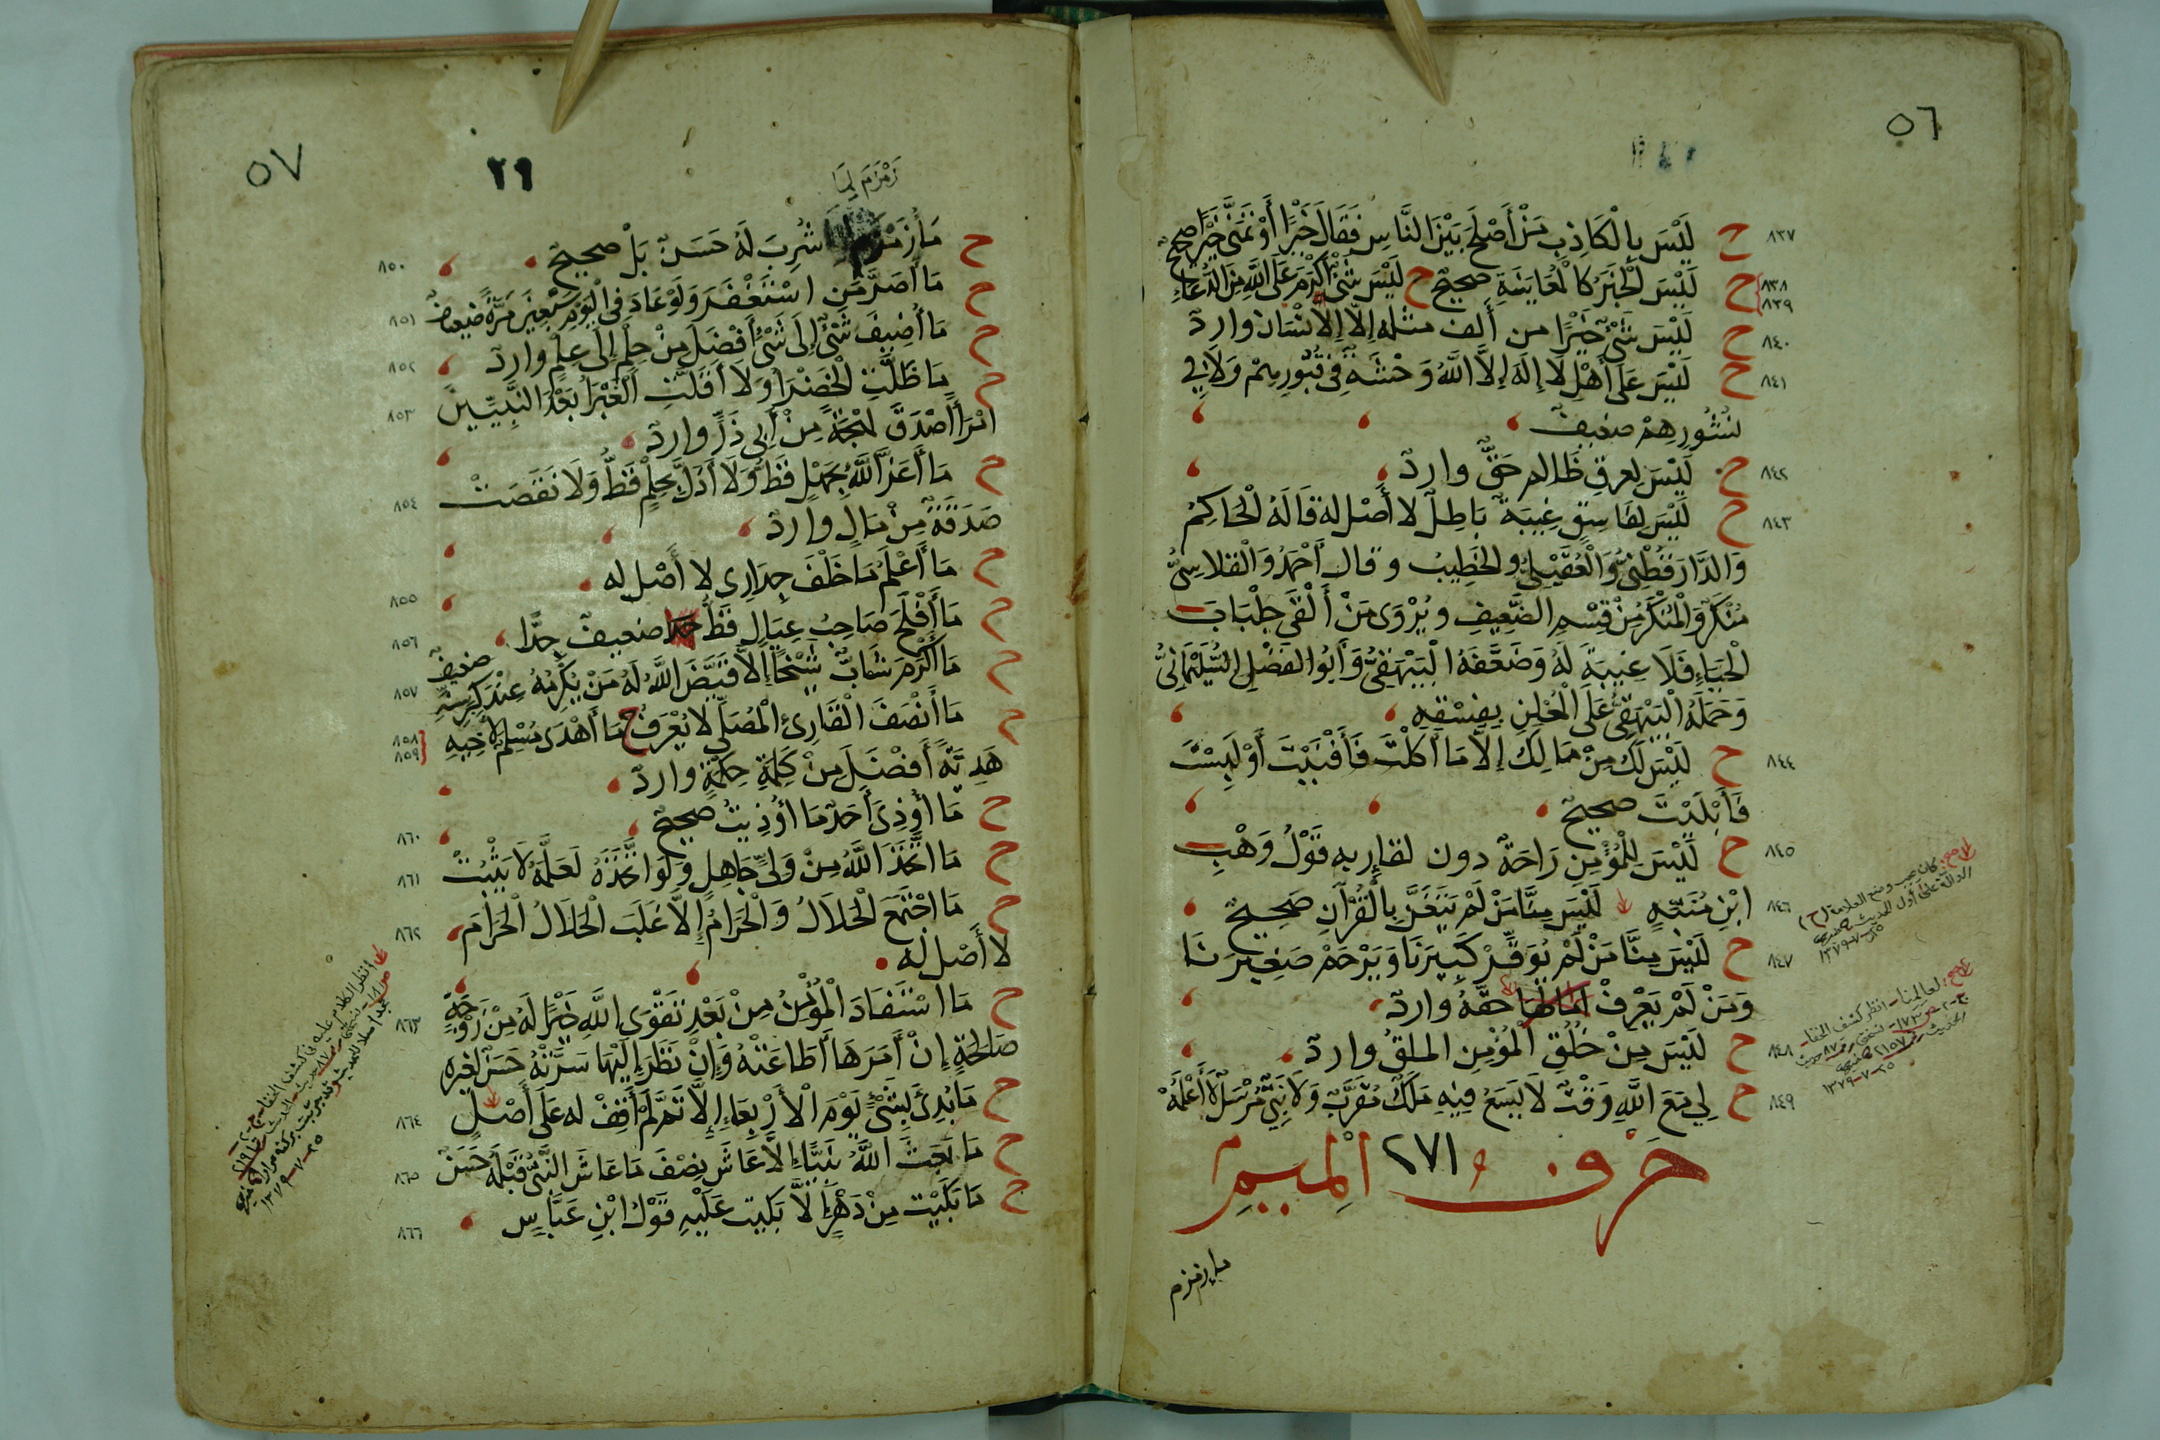 ٥٦
٨٣٧ ح لَيْسَ بِالْكَاذِبِ مَنْ أَصْلَحَ بَيْنَ النَّاسِ فَقَالَ خَيْرًا أَوْ نَمَّى خَيْرًا صحيح
٨٣٨ ٨٣٩ ح لَيْسَ الْخَبَرُ كَالْمُعَايَنَةِ صحيح ح لَيْسَ شَيْءٌ أَكْرَمَ عَلَى اللَّهِ مِنَ الدُّعَاءِ
٨٤٠ ح لَيْسَ شَيْءٌ خَيْرًا من ألف مثله إلا الإنسان وارد
٨٤١ ح لَيْسَ عَلَى أَهْلِ لَا إِلَهَ إِلَّا اللَّهُ وَحْشَةٌ فِي قُبُورِهِمْ وَلَا فِي
نُشُورِهِمْ ضعيف
٨٤٢ ح لَيْسَ لعرق ظَالم حَقٌّ وارد
٨٤٣ ح لَيْسَ لِفَاسِقٍ غِيبَةٌ بَاطِلٌ لا أَصْل له قَالَهُ الْحَاكِمُ
وَالدَّارَقُطْنِيُّ وَالْعُقَيْلِيُّ والخَطِيبُ وقال أَحْمَدُ وَالْفَلَاسِيُّ
مُنْكَرٌ وَالْمُنْكَرُ مِنْ قِسْمِ الضَّعِيفِ ويُرْوَى مَنْ أَلْقَى جِلْبَابَ
الْحَيَاءِ فَلَا غِيبَةَ لَهُ وَضَعَّفَهُ الْبَيْهَقِيُّ وَأَبُو الفَضْلِ السُّلَيْمَانِيُّ
وَحَمَلَهُ الْبَيْهَقِيُّ عَلَى الْمُعْلِنِ بِفِسْقِهِ
٨٤٤ ح لَيْسَ لَكَ مِنْ مَالِكَ إِلَّا مَا أَكَلْتَ فَأَفْنَيْتَ أَوْ لَبِسْتَ
فَأَبْلَيْتَ صحيح
٨٤٥ ح لَيْسَ لِلْمُؤْمِنِ رَاحَةٌ دون لقاء ربه قَوْلُ وَهْبِ
٨٤٦ ابْنِ مُنَبِّهٍ لَيْسَ مِنَّا مَنْ لَمْ يَتَغَنَّ بِالْقُرْآنِ صَحِيحٌ
٨٤٧ ح لَيْسَ مِنَّا مَنْ لَمْ يُوَقِّرْ كَبِيرَنَا وَيَرْحَمْ صَغِيرَنَا
وَمَنْ لَمْ يَعْرِفْ حَقَّهُ وارد
٨٤٨ ح لَيْسَ مِنْ خُلُقِ الْمُؤْمِنِ الملقُ وارد
٨٤٩ ح لِي مَعَ اللَّهِ وَقْتٌ لَا يَسَعُ فِيهِ مَلَكٌ مُقَرَّبٌ وَلَا نَبِيٌّ مُرْسَلٌ لَا أَعْلَمُهُ
حَرْفُ ٢٧١ الْمِيمِ
ماء زمزم
٥٧
٢٩
زَمْزَمَ لِمَا
٨٥٠ ح مَاءُ زَمْزَمَ شُرِبَ لَهُ حَسَنٌ بَلْ صحيح
٨٥١ ح مَا أَصَرَّ مَنِ اسْتَغْفَرَ وَلَوْ عَادَ فِي الْيَوْمِ سَبْعِينَ مَرَّةً ضعيف
٨٥٢ ح مَا أُضِيفَ شَيْءٌ إِلَى شَيْءٍ أَفْضَلَ مِنْ حِلْمٍ إِلَى عِلْمٍ وارد
٨٥٣ ح مَا ظَلَّتِ الْخَضْرَا وَلَا أَقَلَّتِ الْغَبْرَا بَعْدَ النَّبِيِّينَ
امْرَأً أَصْدَقَ لَهْجَةً مِنْ أَبِي ذَرٍّ وارد
٨٥٤ ح مَا أَعَزَّ اللَّهُ بِجَهْلٍ قَطُّ وَلَا أَذَلَّ بِحِلْمٍ قَطُّ وَلَا نَقَصَتْ
صَدَقَةٌ مِنْ مَالٍ وارد
٨٥٥ ح مَا أَعْلَمُ مَا خَلْفَ جِدَارِي لا أَصْل له
٨٥٦ ح مَا أَفْلَحَ صَاحِبُ عِيَالٍ قَطُّ ضعيف جِدًّا
٨٥٧ ح مَا أَكْرَمَ شَابٌّ شَيْخًا إِلَّا قَيَّضَ اللَّهُ لَهُ مَنْ يُكْرِمُهُ عِنْدَ كِبَرِ سِنِّهِ ضعيف
٨٥٨ ٨٥٩ ح مَا أَنْصَفَ الْقَارِئُ الْمُصَلِّي لَا يُعْرَفُ ح مَا أَهْدَى مُسْلِمٌ لِأَخِيهِ
هَدِيَّةً أَفْضَلَ مِنْ كَلِمَةِ حِكْمَةٍ وارد
٨٦٠ ح مَا أُوذِيَ أَحَدٌ مَا أُوذِيتُ صحيح
٨٦١ ح مَا اتَّخَذَ اللَّهُ مِنْ وَلِيٍّ جَاهِلٍ وَلَوِ اتَّخَذَهُ لَعَلَّمَهُ لَا يَثْبُتْ
٨٦٢ ح مَا اجْتَمَعَ الْحَلَالُ وَالْحَرَامُ إِلَّا غَلَبَ الْحَلَالُ الْحَرَامَ
لا أَصْل له
٨٦٣ ح مَا اسْتَفَادَ الْمُؤْمِنُ مِنْ بَعْدِ تَقْوَى اللَّهِ خَيْرًا لَهُ مِنْ زَوْجَةٍ
صَالِحَةٍ إِنْ أَمَرَهَا أَطَاعَتْهُ وَإِنْ نَظَرَ إِلَيْهَا سَرَّتْهُ حَسَنٌ لغيره
٨٦٤ ح مَا بُدِئَ بِشَيْءٍ يَوْمَ الْأَرْبِعَاءِ إِلَّا تَمَّ لَمْ أَقِفْ له عَلَى أَصْلٍ
٨٦٥ ح مَا بَعَثَ اللَّهُ نَبِيًّا إِلَّا عَاشَ نِصْفَ مَا عَاشَ النَّبِيُّ قَبْلَهُ حَسَنٌ
٨٦٦ ح مَا بَكَيْت مِنْ دَهْرٍ إِلَّا بَكيت عَلَيْهِ قَوْل ابْنِ عَبَّاسٍ